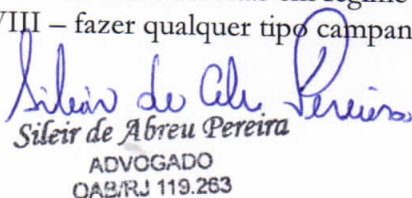 VIII – fazer qualquer tipo campan
Sileir de Abreu Pereira
Sileir de Abreu Pereira
ADVOGADO
OAB/RJ 119.263